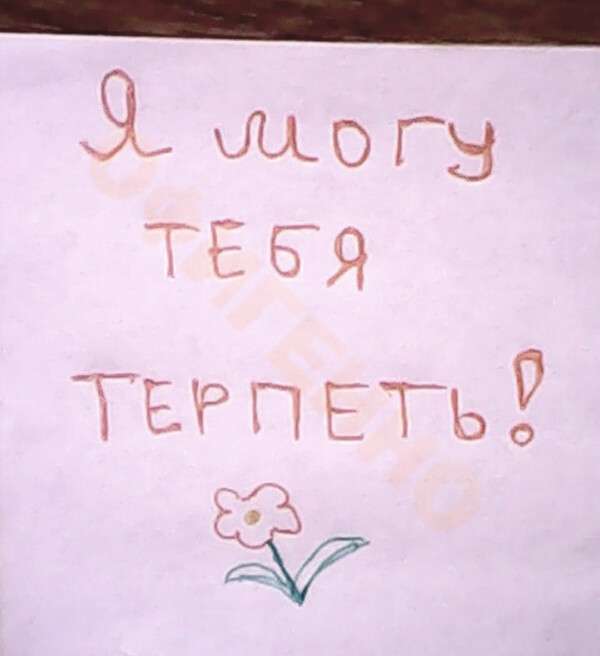 Я могу
ТЕБЯ
ТЕРПЕТЬ!